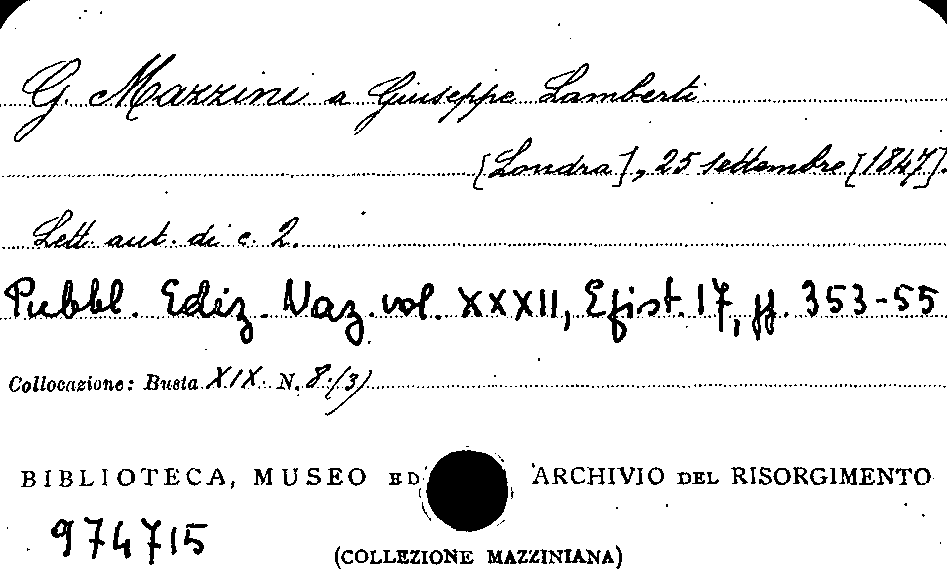 G. Mazzini a Giuseppe Lamberti
[Londra], 25 settembre [1847].
Lett. aut. di c. 2.
Pubbl. Ediz. Naz. vol. XXXII, Epist. 17, pp. 353-55
Collocazione: Busta XIX N. 8 (3)
BIBLIOTECA, MUSEO ED ARCHIVIO DEL RISORGIMENTO
974715
(COLLEZIONE MAZZINIANA)